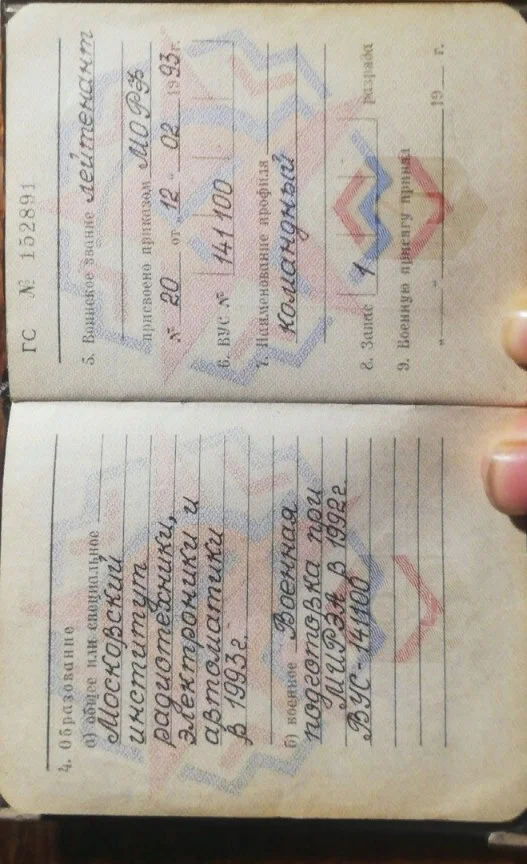 4. Образование
а) общее или специальное
Московский
институт
радиотехники,
электроники и
автоматики
в 1993г.
б) военное Военная
подготовка при
МИРЭА в 1992г
ВУС-141100
ГС № 152891
5. Воинское звание лейтенант
присвоено приказом МОРФ
№ 20 от "12" 02 1993г.
6. ВУС № 141100
7. Наименование профиля
командный
8. Запас 1 разряда
9. Военную присягу принял
" " 19 г.